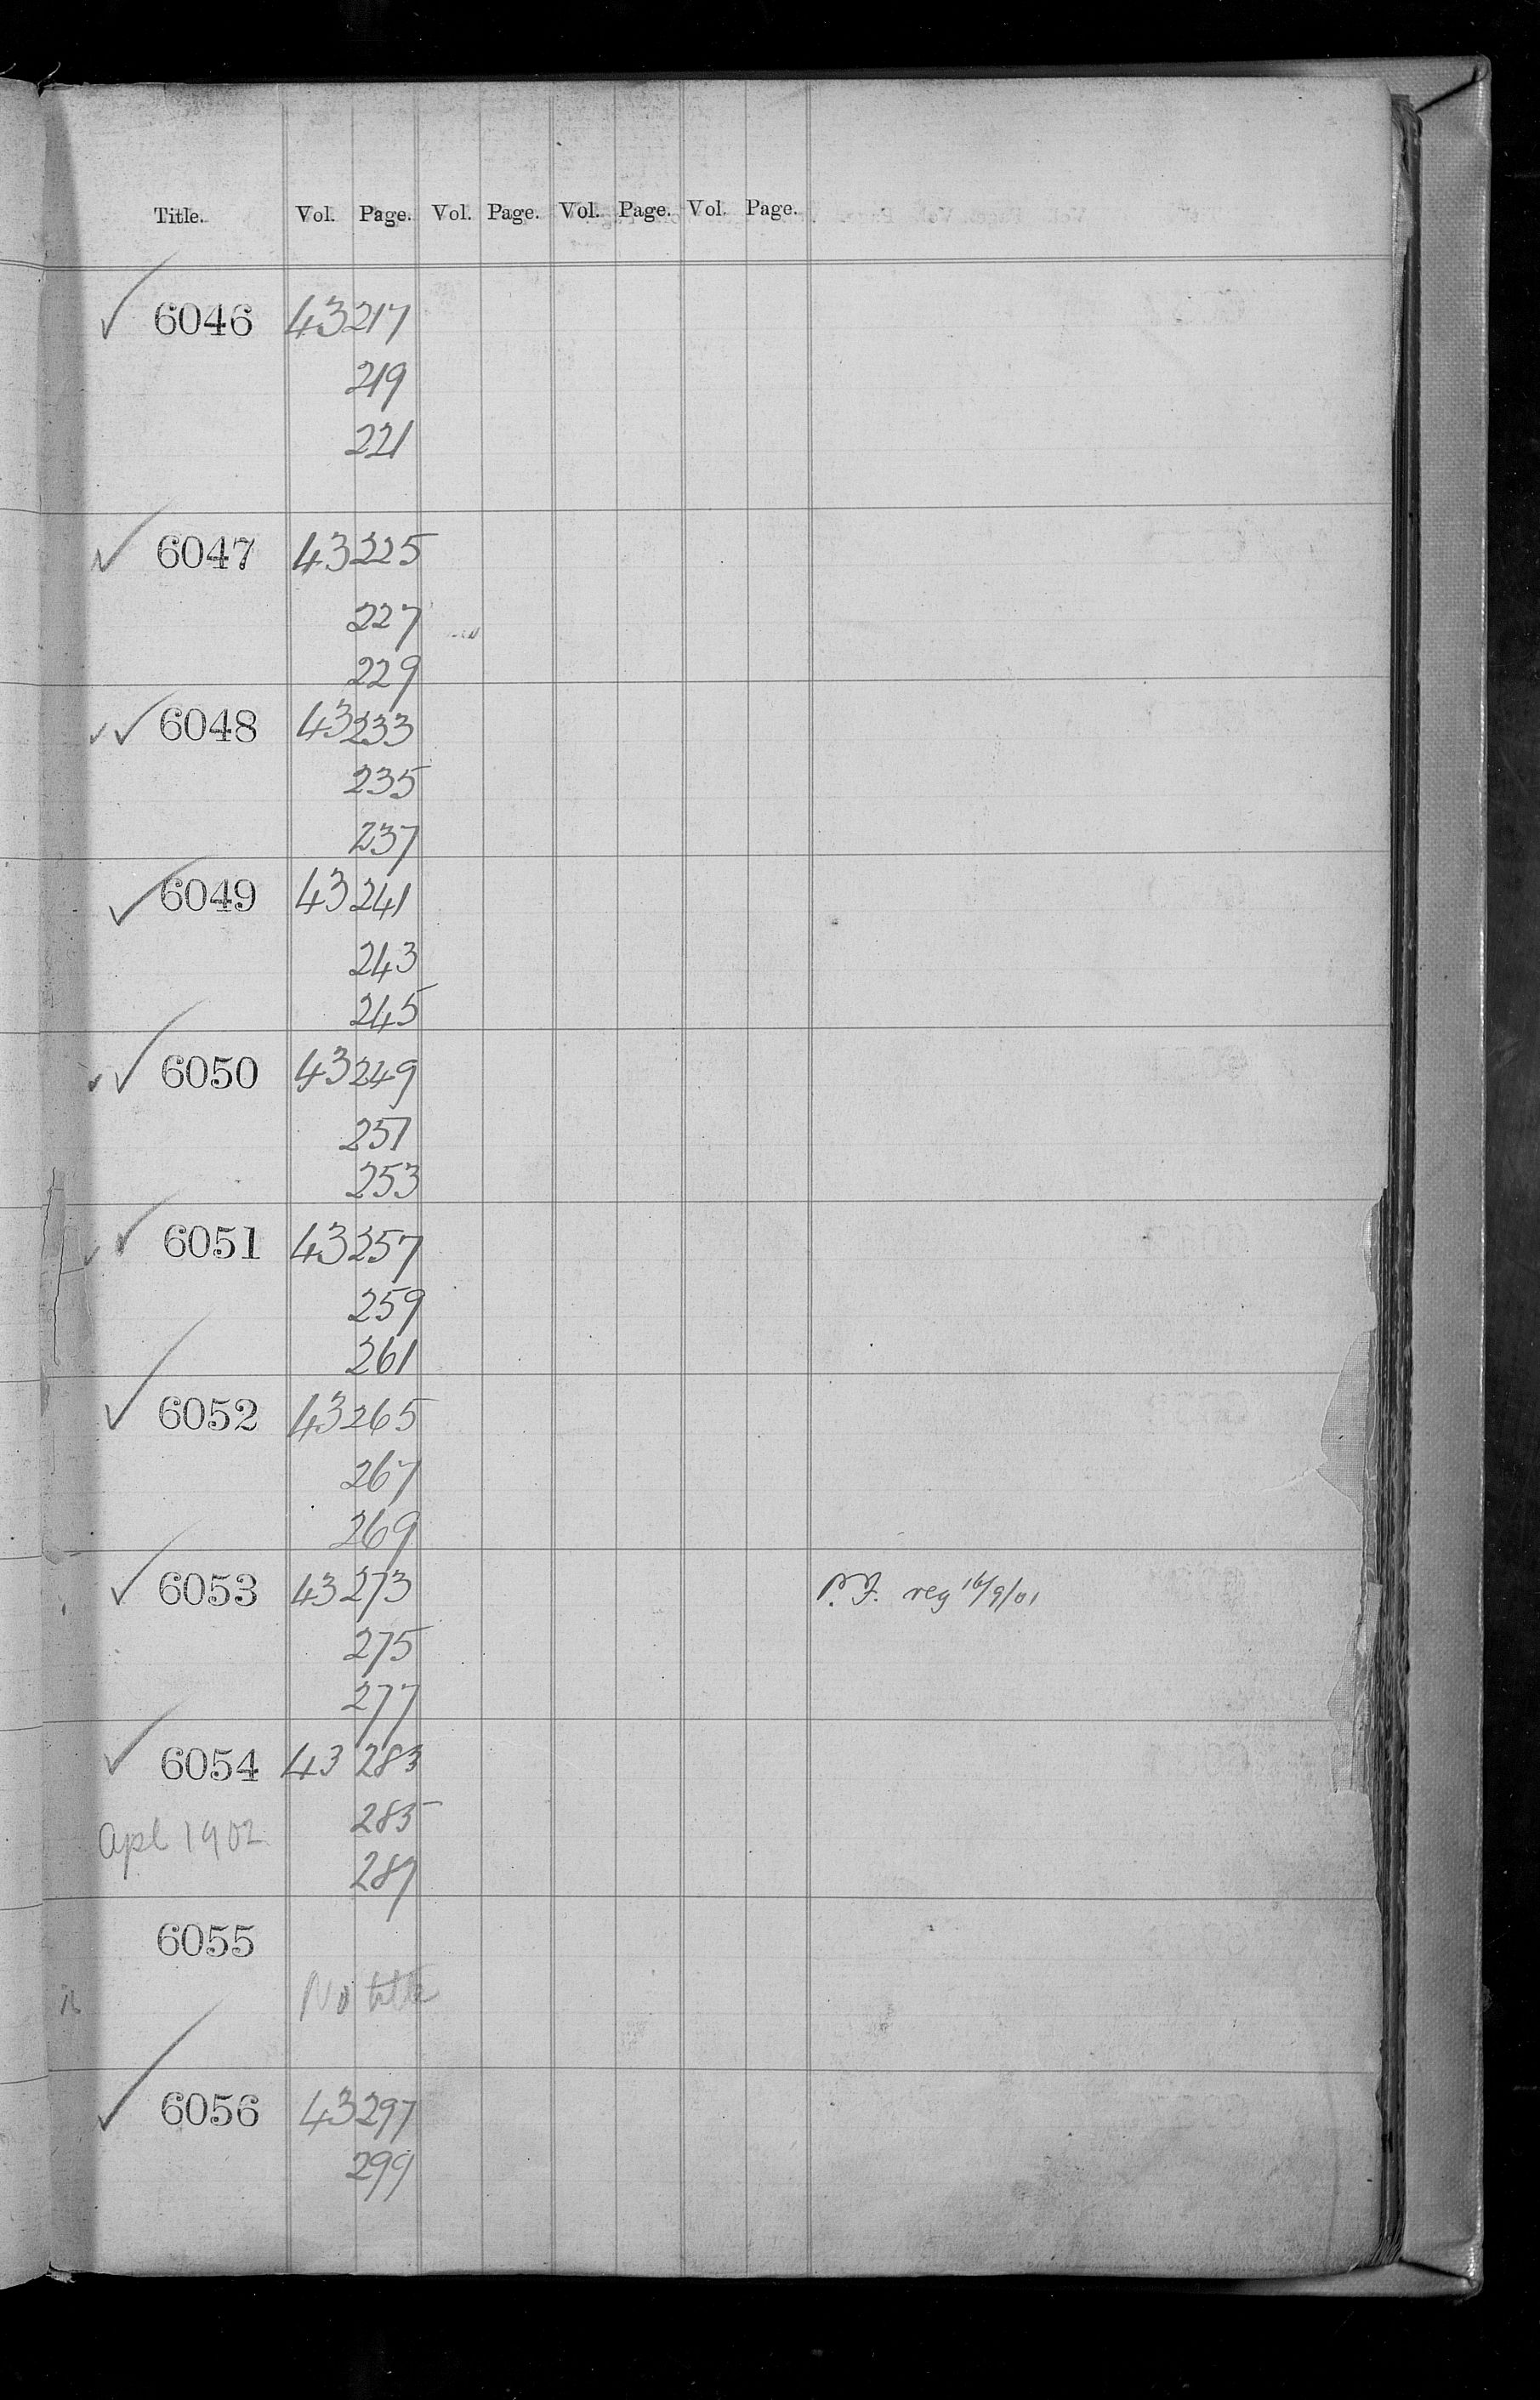 Title. Vol. Page. Vol. Page. Vol. Page. Vol. Page.
✓ 6046 43 217
219
221
✓ 6047 43 225
227
229
✓✓ 6048 43 233
235
237
✓ 6049 43 241
243
245
✓✓ 6050 43 249
251
253
✓✓ 6051 43 257
259
261
✓ 6052 43 265
267
269
✓ 6053 43 273 P.F. reg 16/9/01
275
277
✓ 6054 43 283
Apl 1902 285
289
6055
No title
✓ 6056 43 297
299